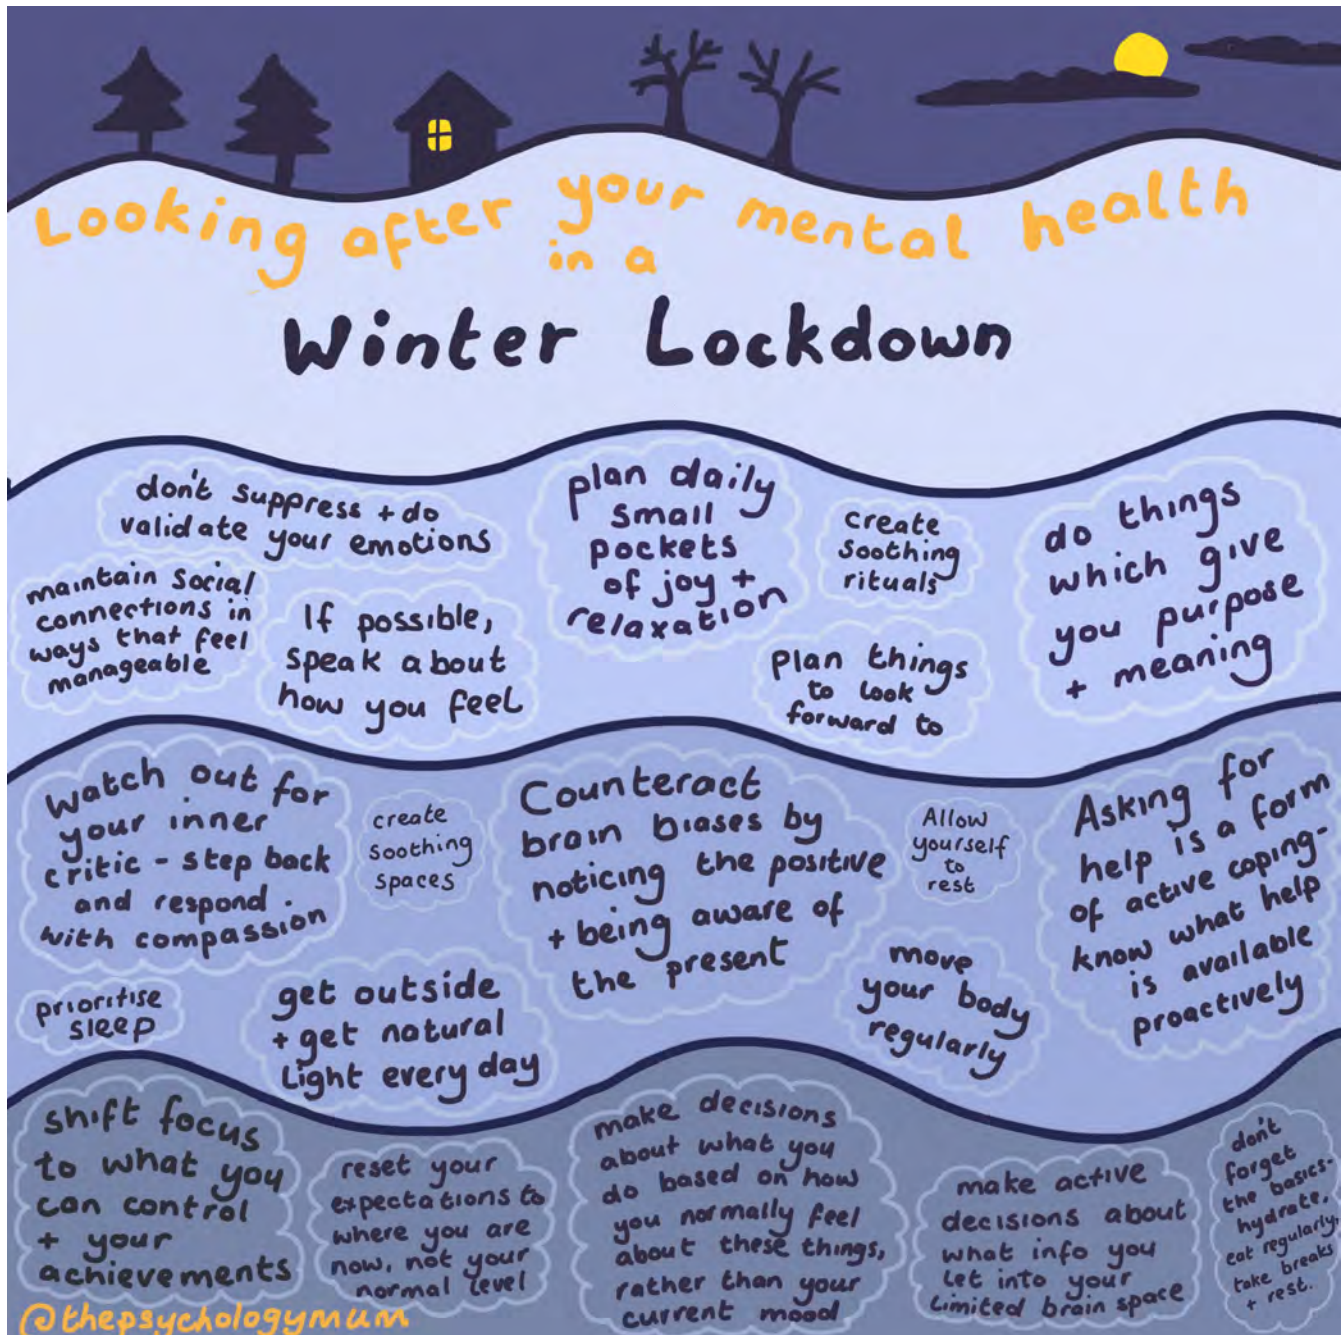 Looking after your mental health
in a
Winter Lockdown
don't suppress + do
validate your emotions
maintain social
connections in
ways that feel
manageable
If possible,
speak about
how you feel
plan daily
small
pockets
of joy +
relaxation
create
soothing
rituals
plan things
to look
forward to
do things
which give
you purpose
+ meaning
watch out for
your inner
critic - step back
and respond
with compassion
create
soothing
spaces
Counteract
brain biases by
noticing the positive
+ being aware of
the present
Allow
yourself
to
rest
Asking for
help is a form
of active coping-
know what help
is available
proactively
prioritise
sleep
get outside
+ get natural
Light every day
move
your body
regularly
shift focus
to what you
can control
+ your
achievements
reset your
expectations to
where you are
now, not your
normal level
make decisions
about what you
do based on how
you normally feel
about these things,
rather than your
current mood
make active
decisions about
what info you
let into your
limited brain space
don't
forget
the basics-
hydrate,
eat regularly,
take breaks
+ rest.
@thepsychologymum